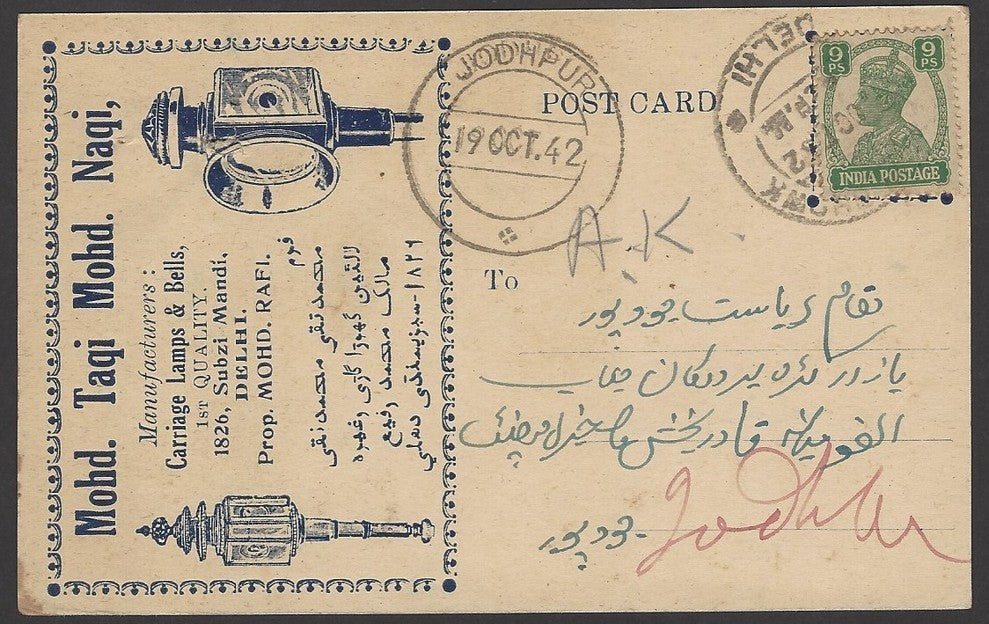 Mohd. Taqi Mohd. Naqi,
Manufacturers:
Carriage Lamps & Bells,
1ST QUALITY.
1826, Subzi Mandi,
DELHI.
Prop. MOHD. RAFI.
فرم
محمد تقی محمد نقی
لالٹین گھوڑا گاڑی وغیرہ
مالک محمد رفیع
۱۸۲۶-سبزیمنڈی دھلی
JODHPUR
19 OCT. 42
POST CARD
DELHI
9 PS
9 PS
INDIA POSTAGE
A.K.
To
بمقام ریاست جودہپور
قادر بخش
جودہپور
Jodhpur